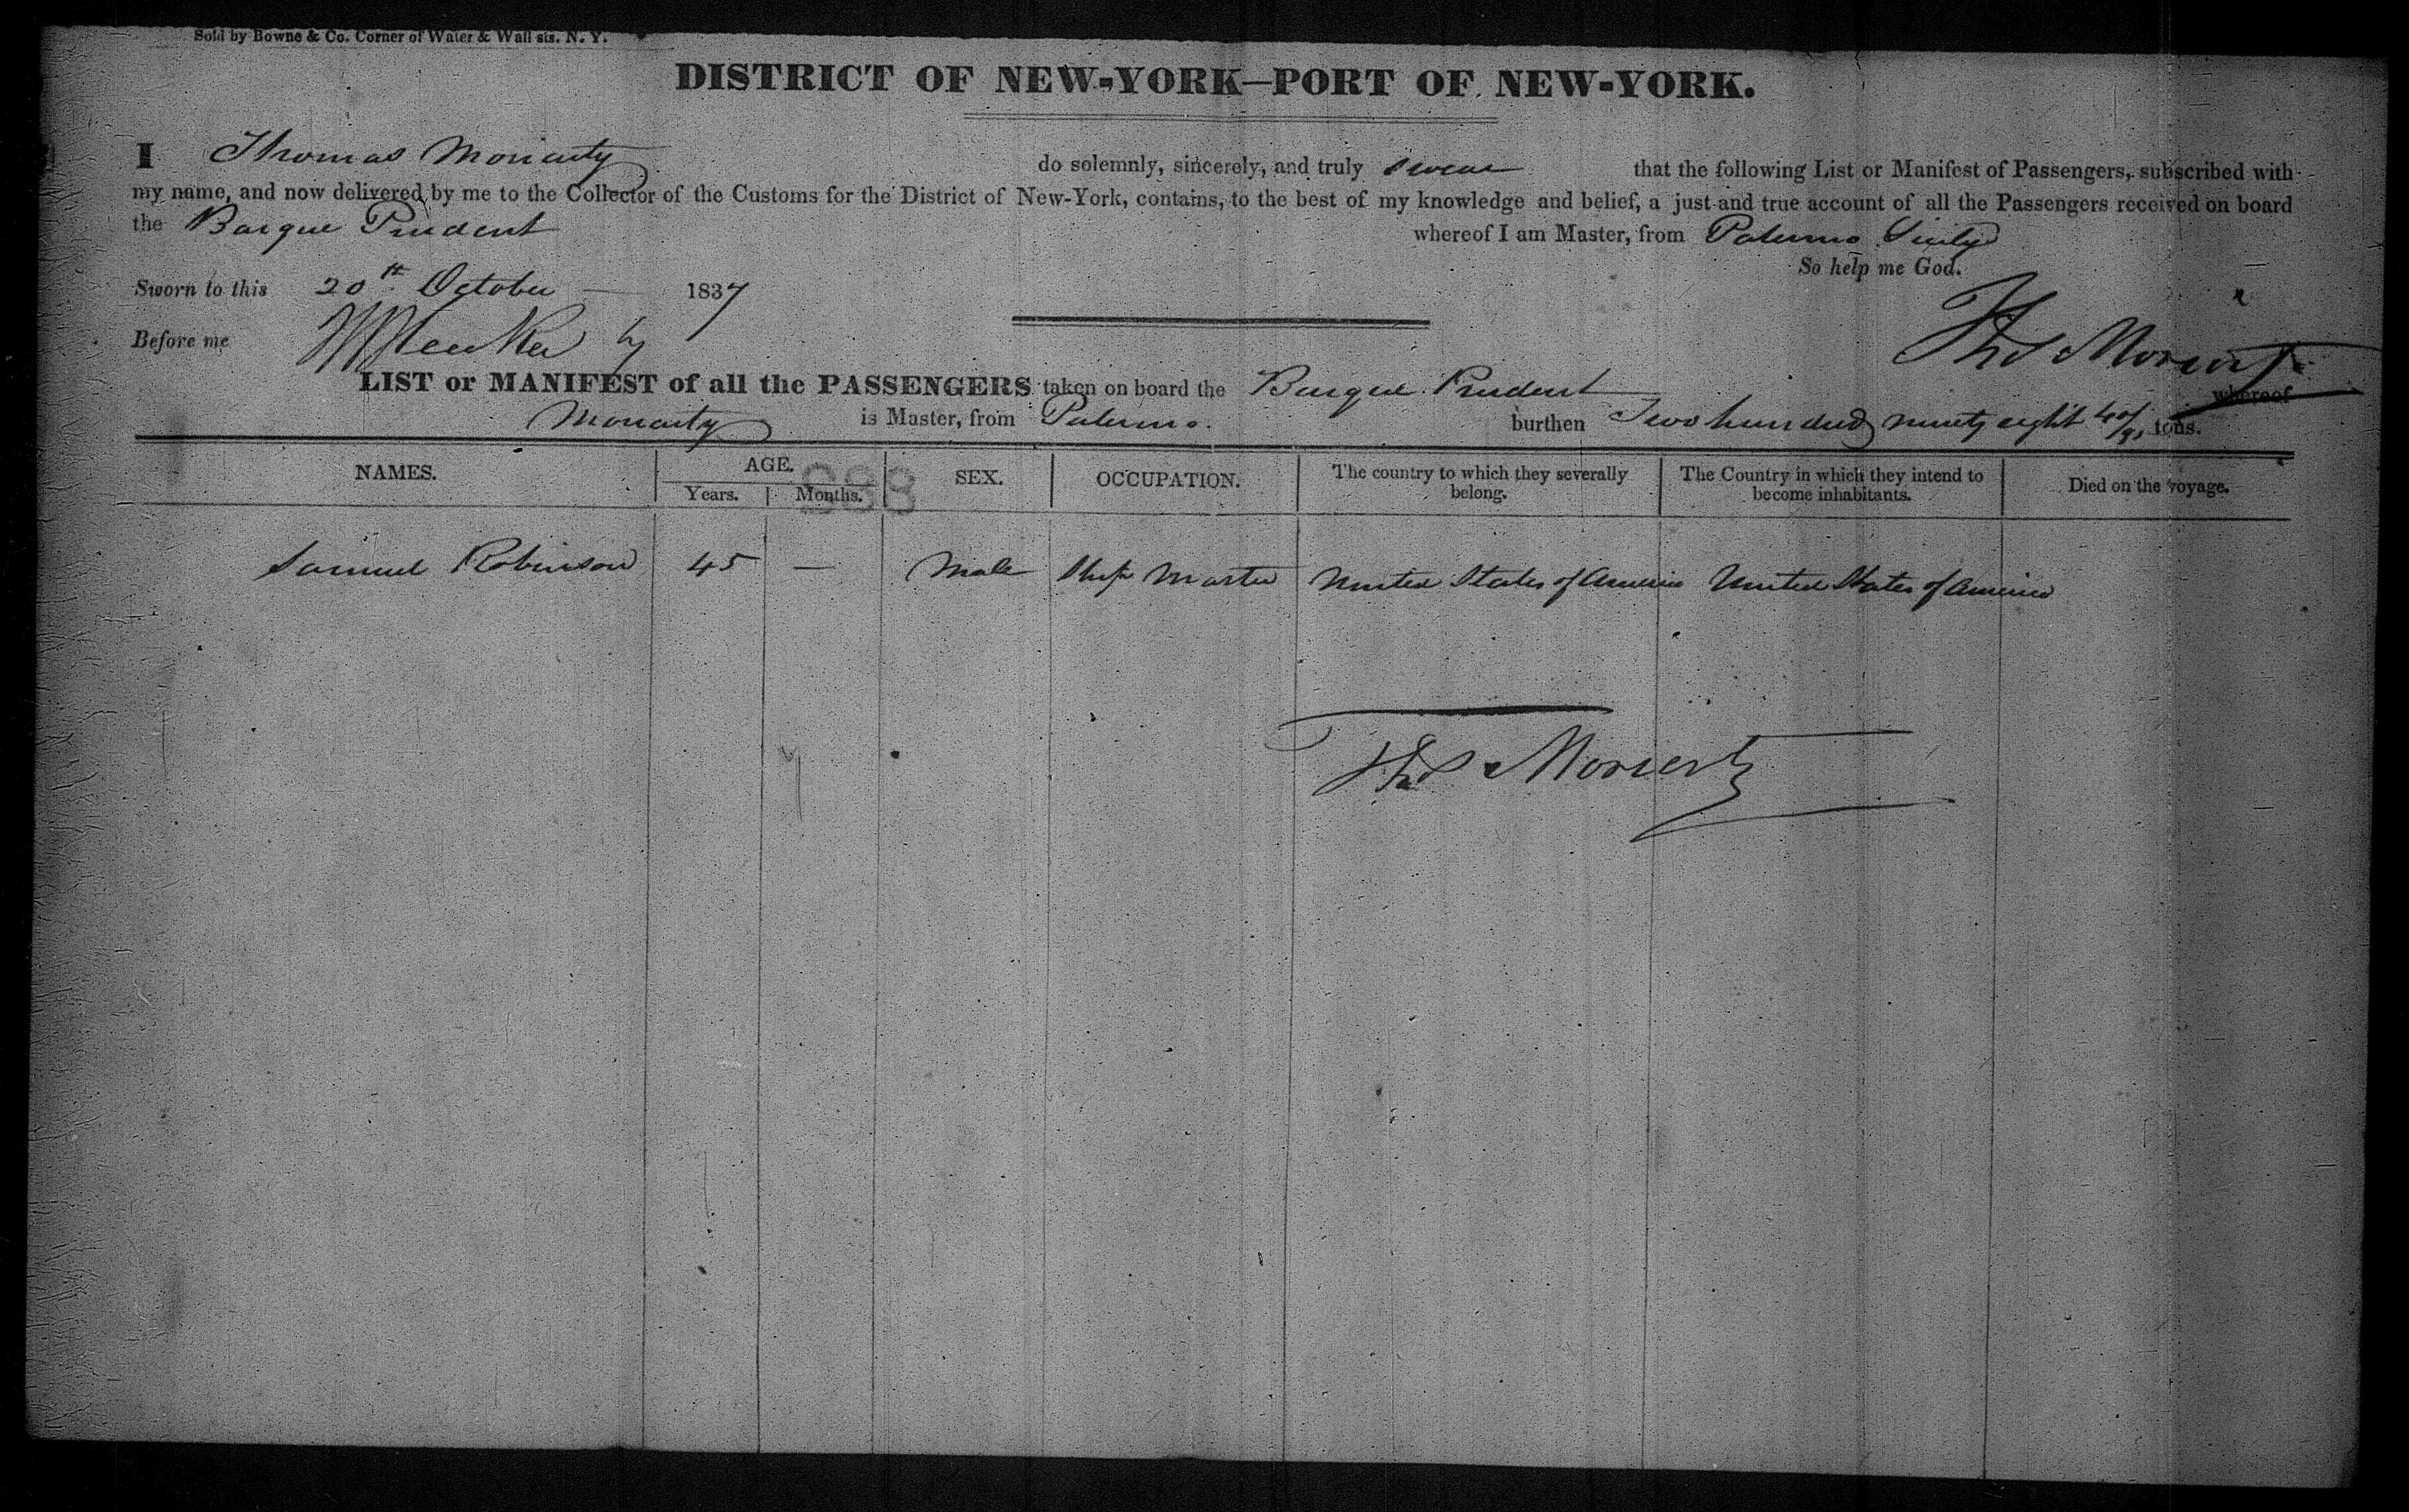 Sold by Bowne & Co. Corner of Water & Wall sts. N. Y.
DISTRICT OF NEW-YORK—PORT OF NEW-YORK.
I Thomas Moriarty do solemnly, sincerely, and truly swear that the following List or Manifest of Passengers, subscribed with
my name, and now delivered by me to the Collector of the Customs for the District of New-York, contains, to the best of my knowledge and belief, a just and true account of all the Passengers received on board
the Barque Prudent whereof I am Master, from Palermo Sicily
So help me God.
Sworn to this 20th October 1837
Before me
Thos Moriarty
LIST or MANIFEST of all the PASSENGERS taken on board the Barque Prudent whereof
Moriarty is Master, from Palermo. burthen Two hundred ninety eight tons.
NAMES. AGE. SEX. OCCUPATION. The country to which they severally belong. The Country in which they intend to become inhabitants. Died on the voyage.
Years. Months.
Samuel Robinson 45 — Male Ship Master United States of America United States of America
Thos Moriarty